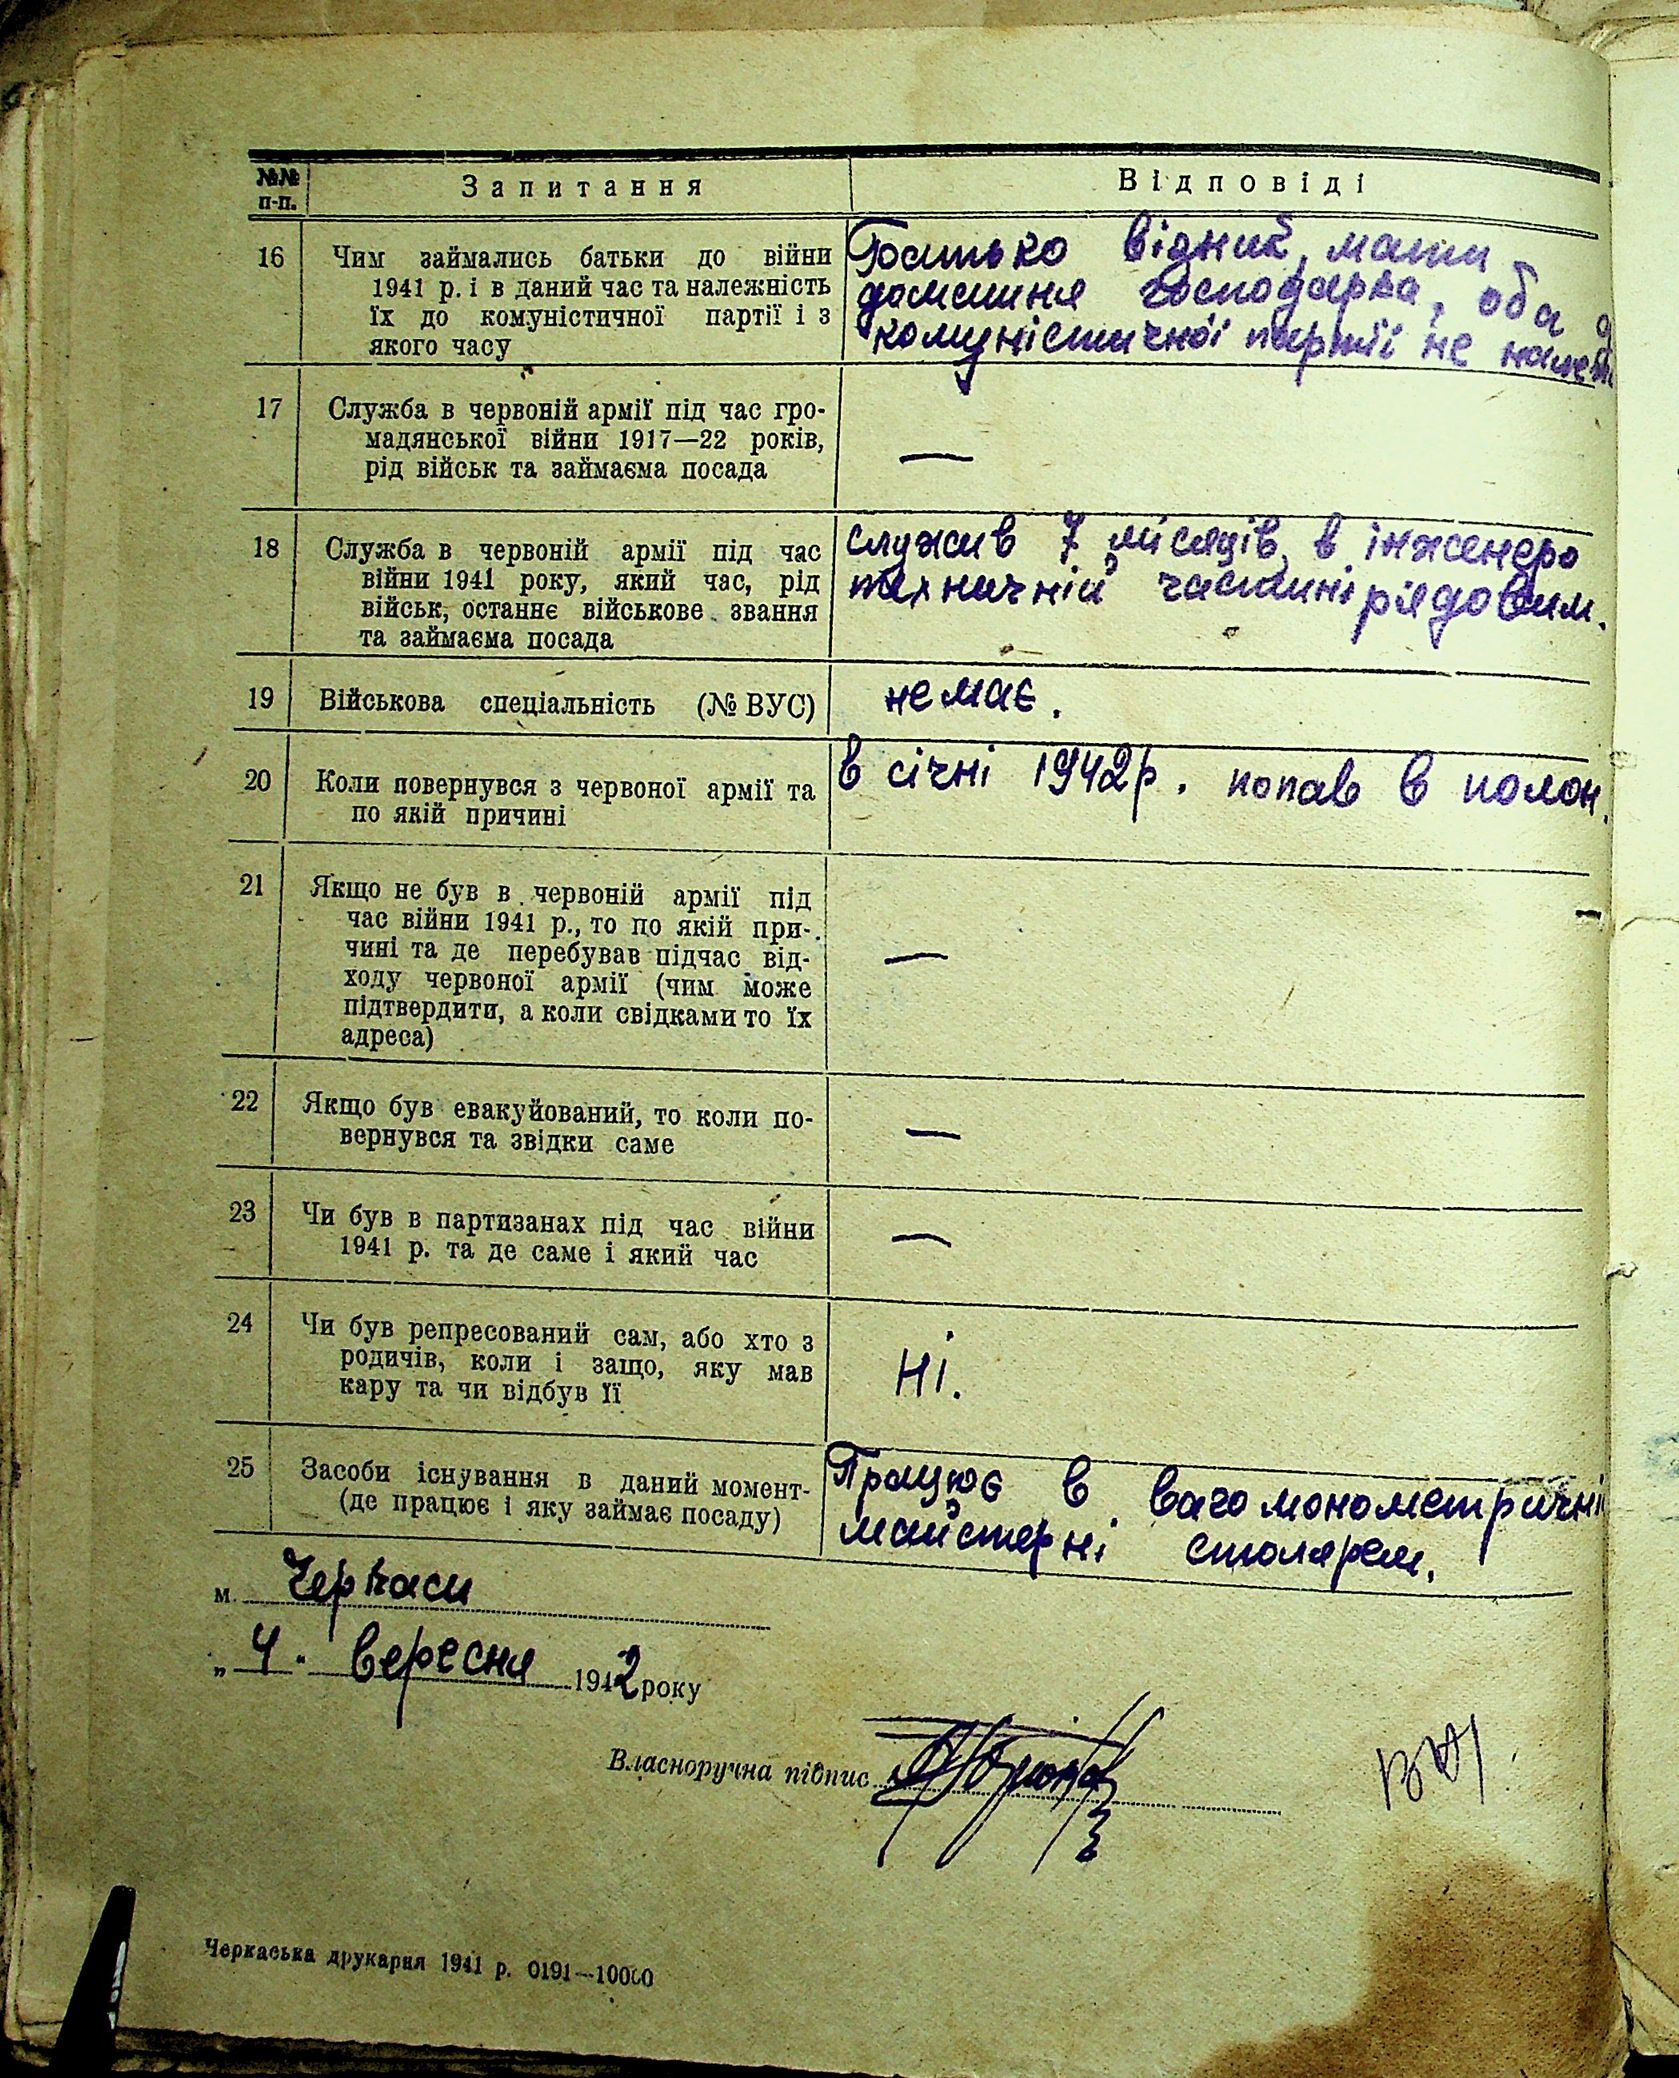 №№ п-п. Запитання Відповіді
16 Чим займались батьки до війни
1941 р. і в даний час та належність
їх до комуністичної партії і з
якого часу
Батько бідний, мати
домашня господарка, оба
комуністичної партії не
17 Служба в червоній армії під час гро-
мадянської війни 1917—22 років,
рід військ та займаєма посада
—
18 Служба в червоній армії під час
війни 1941 року, який час, рід
військ, останнє військове звання
та займаєма посада
служив 7 місяців, в інженеро
технічній частині рядовим.
19 Військова спеціальність (№ ВУС)
немає.
20 Коли повернувся з червоної армії та
по якій причині
в січні 1942р. попав в полон.
21 Якщо не був в червоній армії під
час війни 1941 р., то по якій при-
чині та де перебував підчас від-
ходу червоної армії (чим може
підтвердити, а коли свідками то їх
адреса)
—
22 Якщо був евакуйований, то коли по-
вернувся та звідки саме
—
23 Чи був в партизанах під час війни
1941 р. та де саме і який час
—
24 Чи був репресований сам, або хто з
родичів, коли і защо, яку мав
кару та чи відбув її
Ні.
25 Засоби існування в даний момент-
(де працює і яку займає посаду)
Працює в вагомонометричні
майстерні столярем.
м. Черкаси
„4" вересня 1942 року
Власноручна підпис
Черкаська друкарня 1941 р. 0191—10000